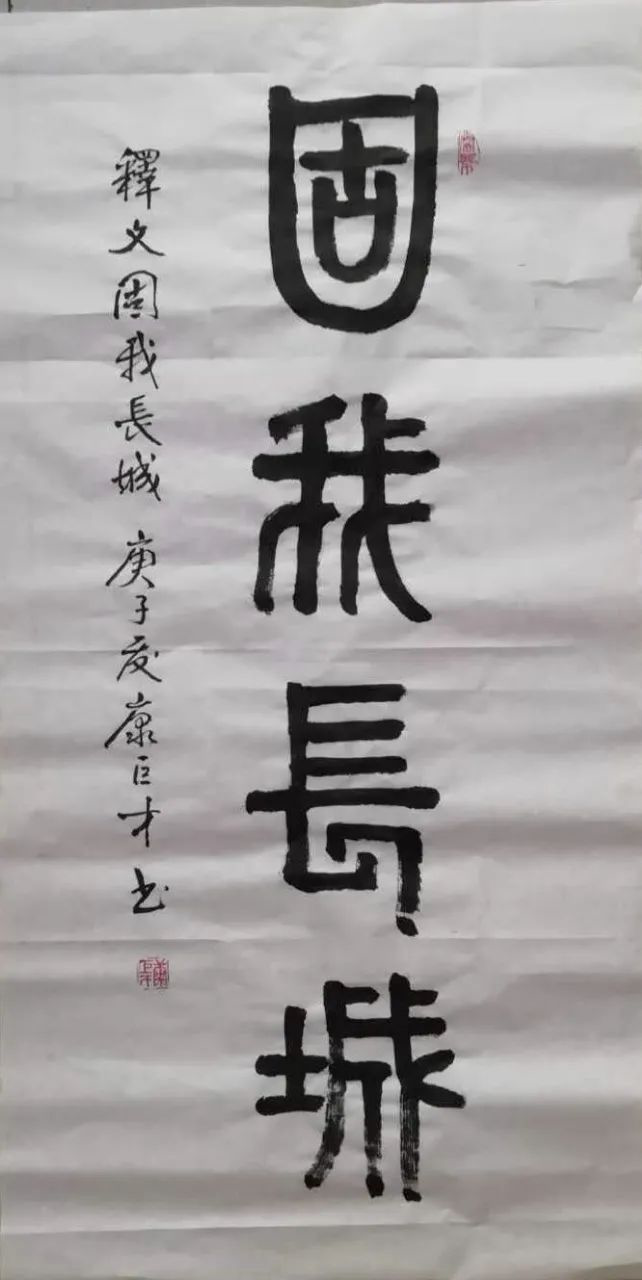 固我長城
釋文固我長城 庚子夏康巨才书